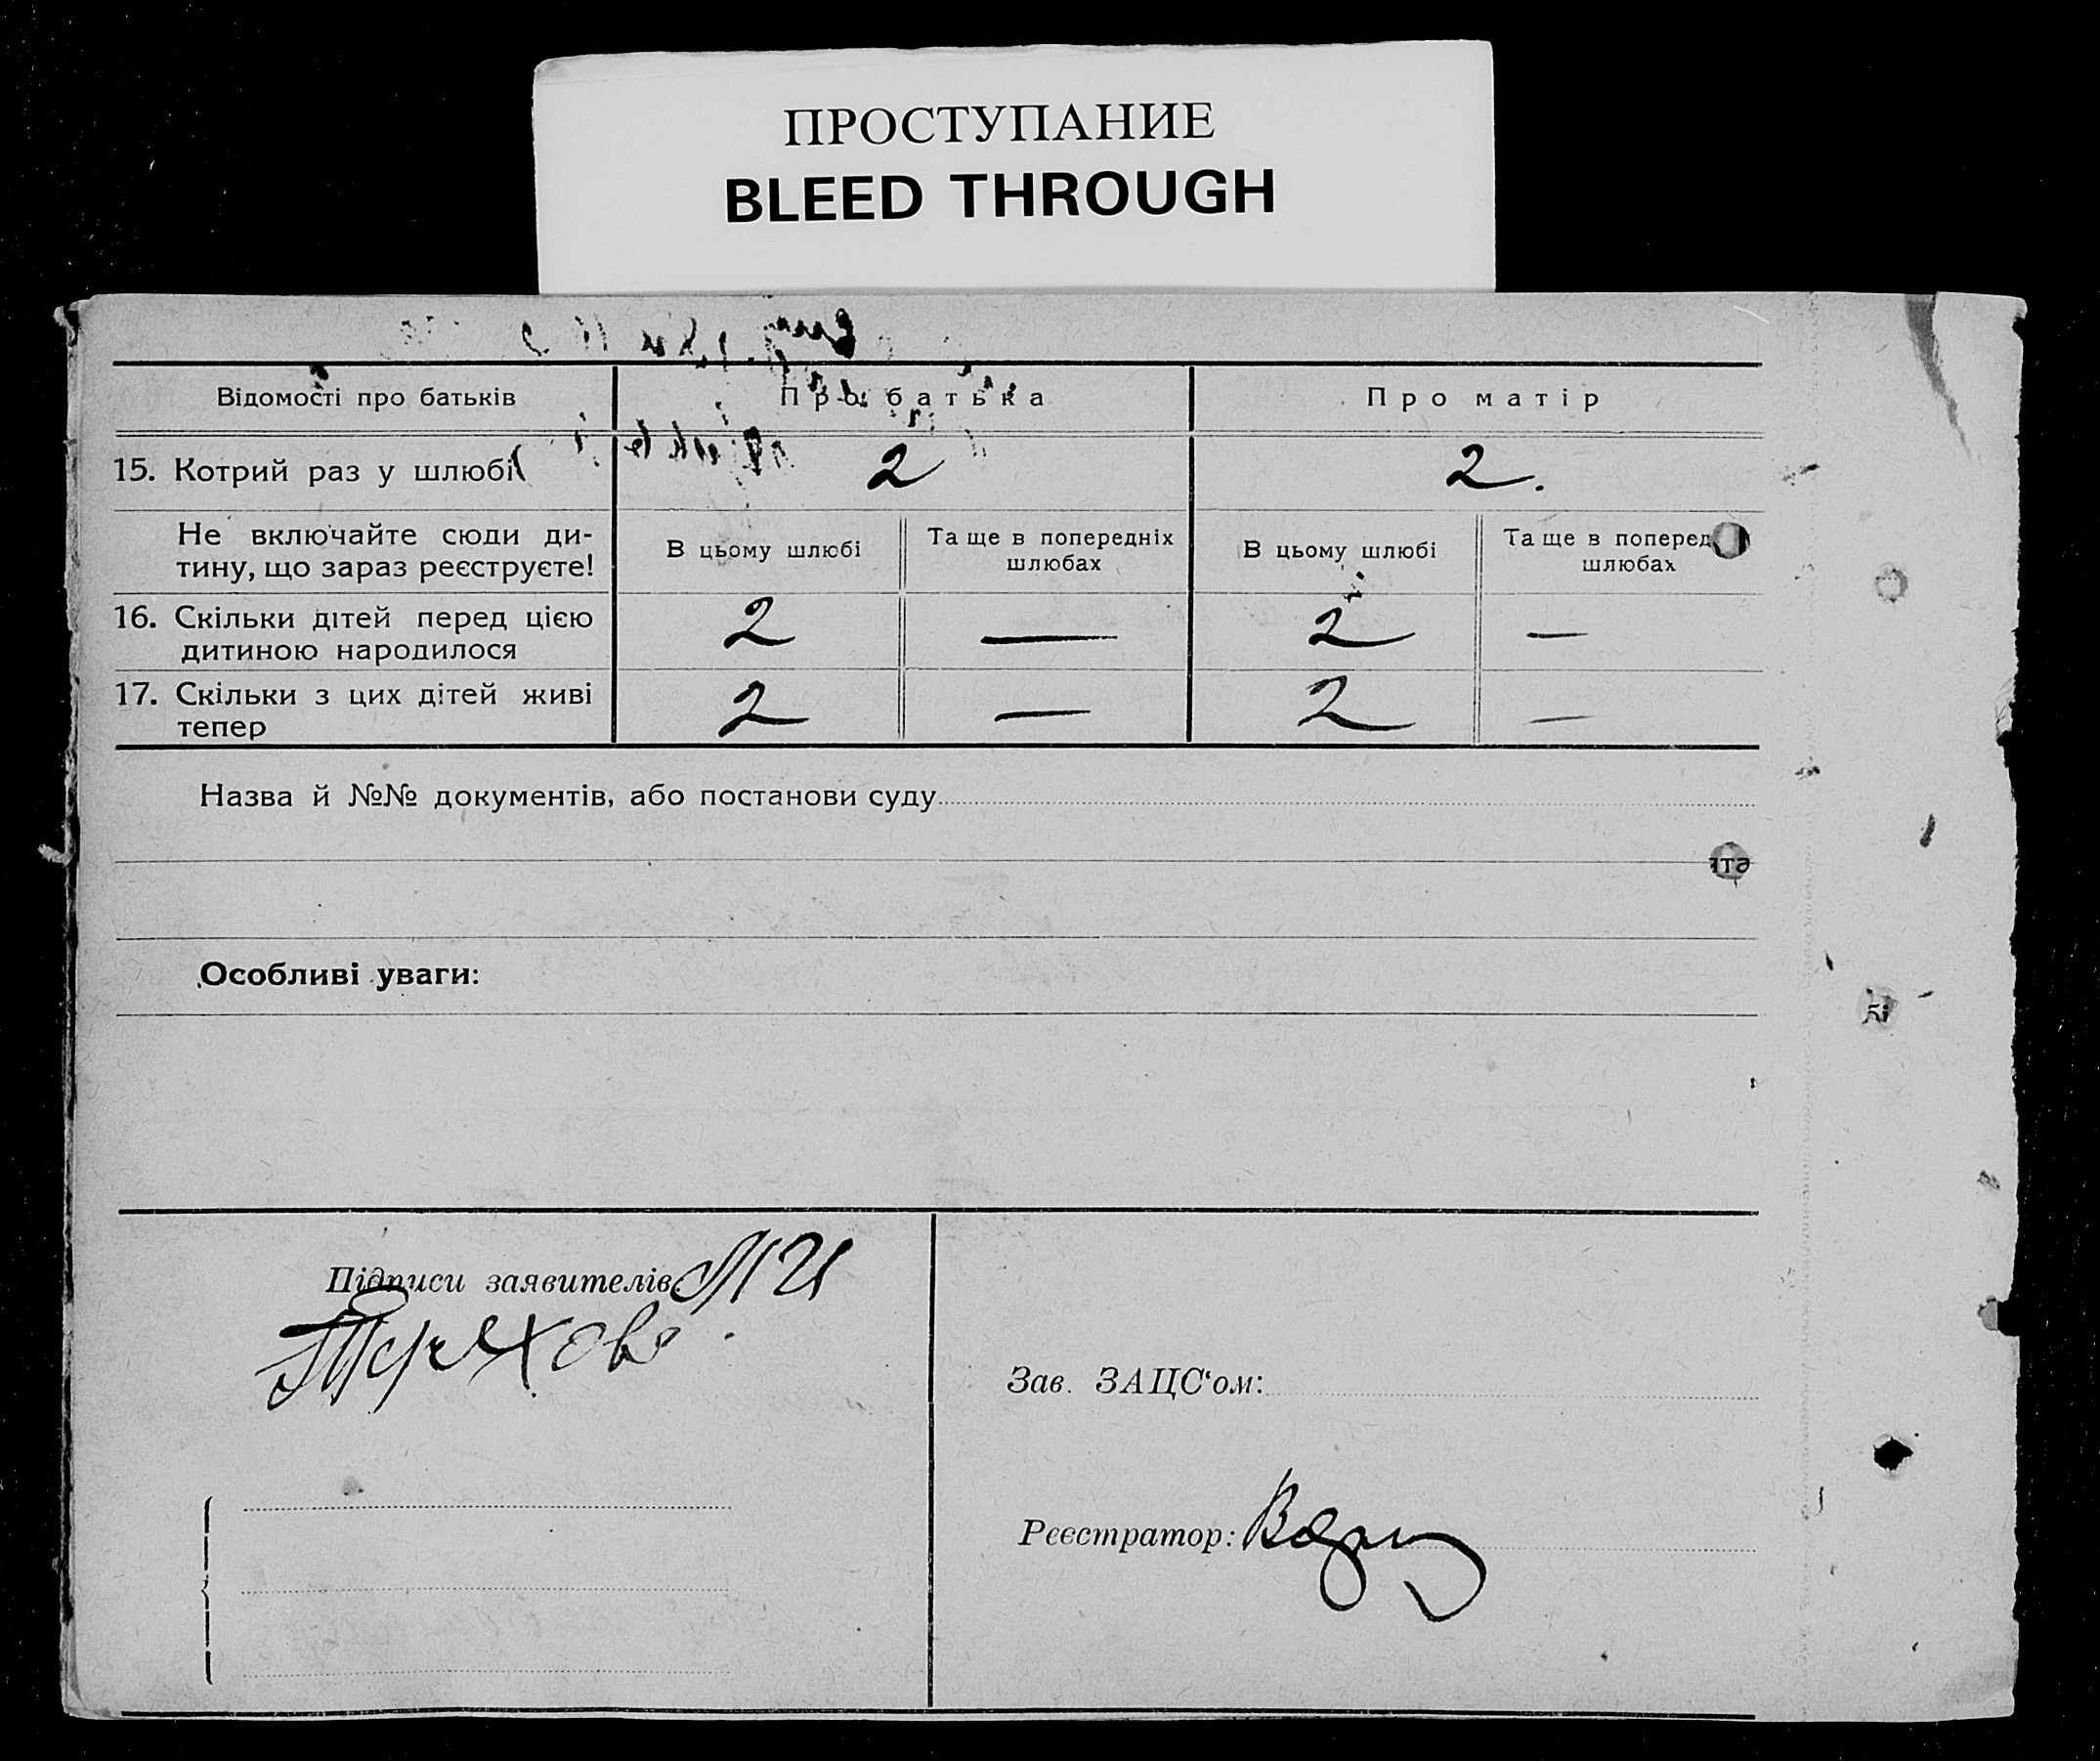 ПРОСТУПАНИЕ
BLEED THROUGH
Відомості про батьків
Про батька
Про матір
15. Котрий раз у шлюбі
2
2.
Не включайте сюди ди-
тину, що зараз реєструєте!
В цьому шлюбі
Та ще в попередніх
шлюбах
В цьому шлюбі
Та ще в поперед
шлюбах
16. Скільки дітей перед цією
дитиною народилося
2
—
2
—
17. Скільки з цих дітей живі
тепер
2
—
2
—
Назва й №№ документів, або постанови суду
ята
Особливі уваги:
бі
Підписи заявителів МИ
Терехов
Зав. ЗАЦС‘ом:
Реєстратор: